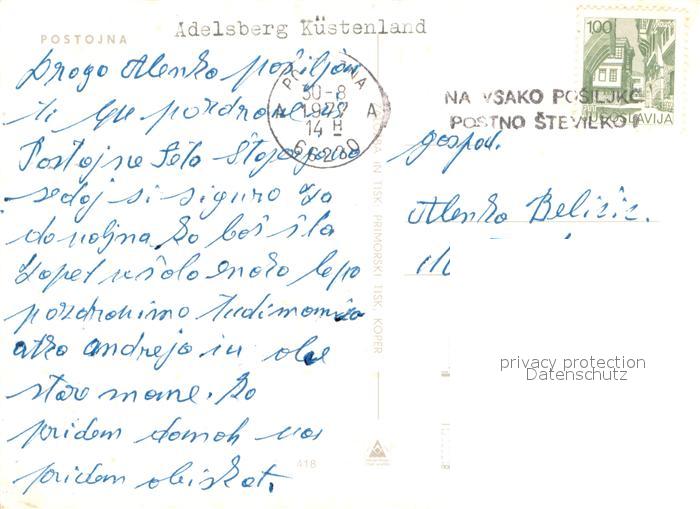 Adelsberg Küstenland
POSTOJNA
Drago Alenko pošiljam
ti lepe pozdrave iz
Postojne
sedaj si siguro že
da boš šla
zopet v šolo enako lepo
pozdravimo tudi mamico
atka andreja in obe
stare mame. ko
pridem domoh vas
pridem obiskat.
30-8
1977
14 H
66230
A
NA VSAKO POŠILJKO
POŠTNO ŠTEVILKO!
100
JUGOSLAVIJA
gospod.
Alenka Belizic.
IN TISK PRIMORSKI TISK KOPER
418
privacy protection
Datenschutz